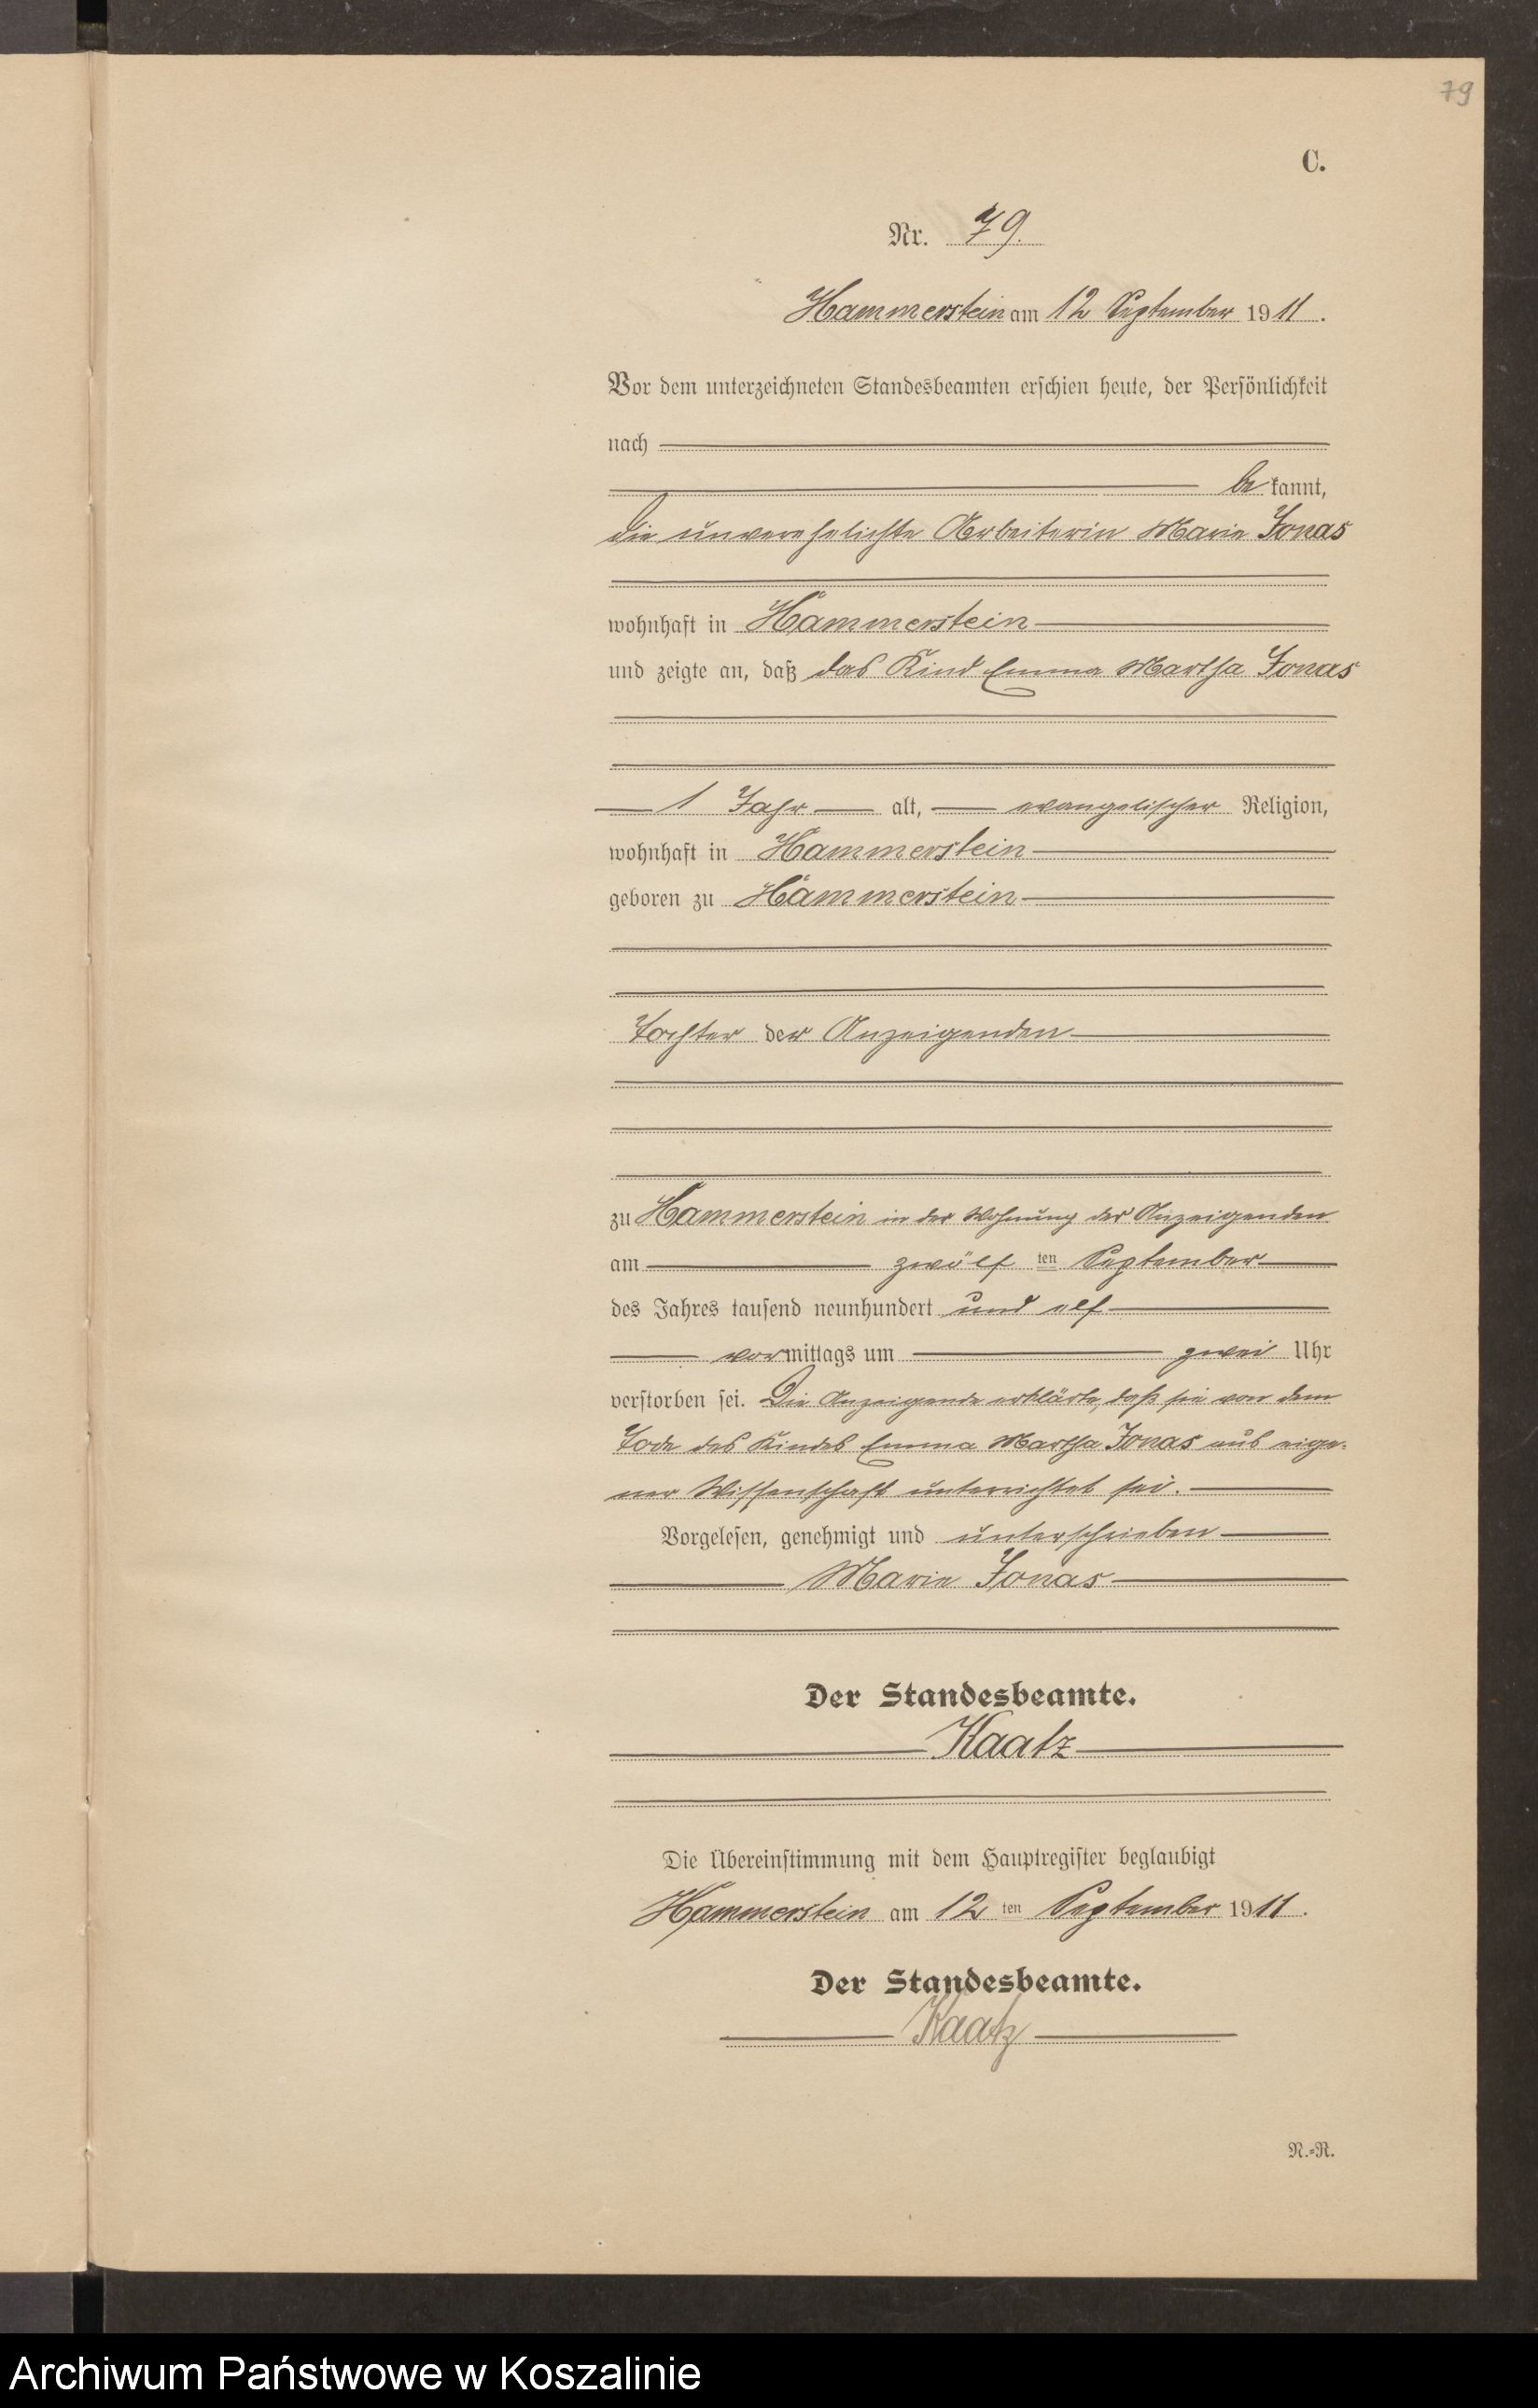 79
C.
Nr. 79.
Hammerstein am 12 September 1911.
Vor dem unterzeichneten Standesbeamten erschien heute, der Persönlichkeit
nach
be kannt,
die unverehelichte Arbeiterin Marie Jonas
wohnhaft in Hammerstein
und zeigte an, daß das Kind Emma Martha Jonas
1 Jahr alt, evangelischer Religion,
wohnhaft in Hammerstein
geboren zu Hammerstein
Tochter der Anzeigenden
zu Hammerstein in der Wohnung der Anzeigenden
am zwölf ten September
des Jahres tausend neunhundert und elf
vormittags um zwei Uhr
verstorben sei. Die Anzeigende erklärte, daß sie von dem
Tode des Kindes Emma Martha Jonas aus eige-
ner Wissenschaft unterrichtet sei.
Vorgelesen, genehmigt und unterschrieben
Marie Jonas
Der Standesbeamte.
Kaatz
Die Übereinstimmung mit dem Hauptregister beglaubigt
Hammerstein am 12 ten September 1911.
Der Standesbeamte.
Kaatz
N.-R.
Archiwum Państwowe w Koszalinie